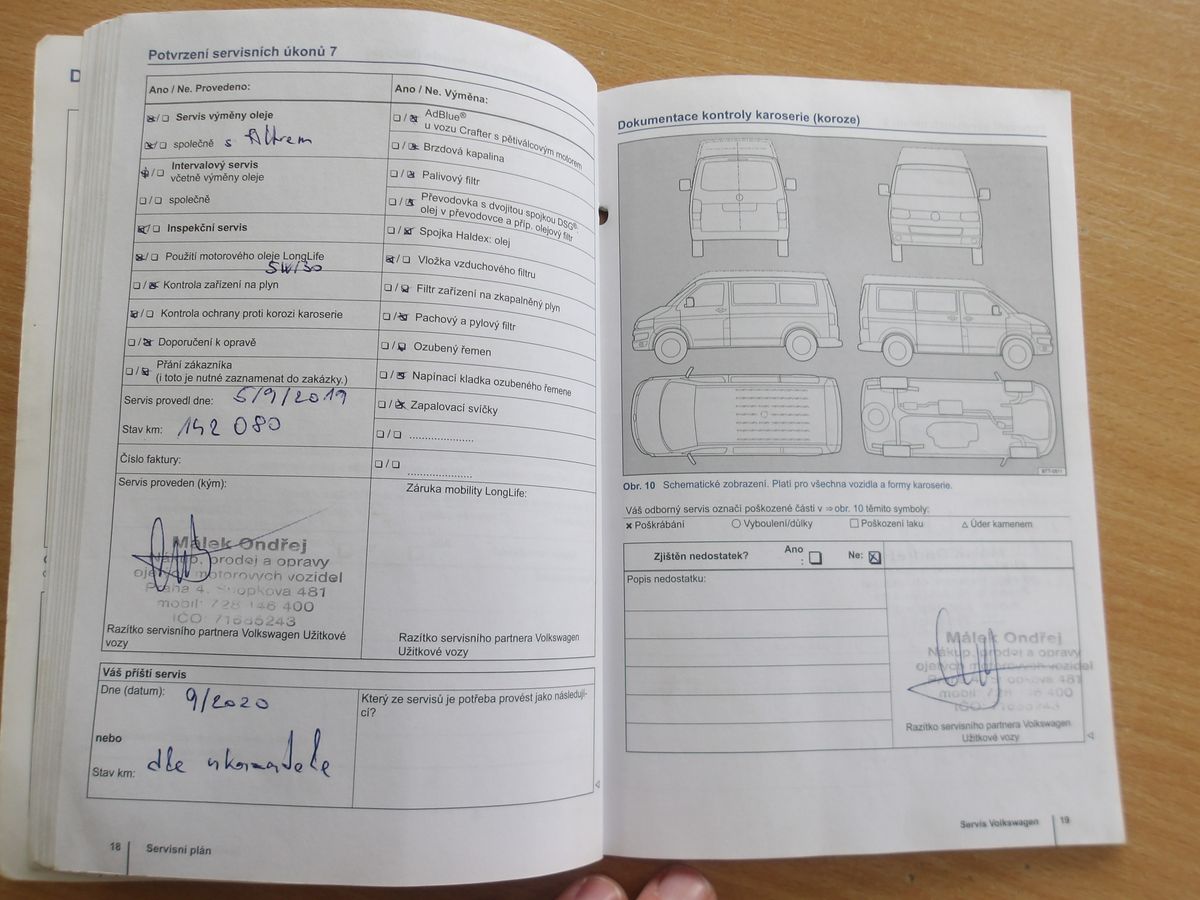 Potvrzení servisních úkonů 7
Ano / Ne. Provedeno:
☒/☐ Servis výměny oleje
☒/☐ společně s filtrem
☒/☐ Intervalový servis
včetně výměny oleje
☐/☐ společně
☒/☐ Inspekční servis
☒/☐ Použití motorového oleje LongLife
5W/30
☐/☒ Kontrola zařízení na plyn
☒/☐ Kontrola ochrany proti korozi karoserie
☐/☒ Doporučení k opravě
☐/☒ Přání zákazníka
(i toto je nutné zaznamenat do zakázky.)
Servis provedl dne: 5/9/2019
Stav km: 142 080
Číslo faktury:
Servis proveden (kým):
Málek Ondřej
Nákup, prodej a opravy
ojetých motorových vozidel
Praha 4, 481
mobil: 728 146 400
IČO: 71665243
Razítko servisního partnera Volkswagen Užitkové
vozy
Ano / Ne. Výměna:
☐/☒ AdBlue®
u vozu Crafter s pětiválcovým motorem
☐/☒ Brzdová kapalina
☐/☒ Palivový filtr
☐/☒ Převodovka s dvojitou spojkou DSG®:
olej v převodovce a příp. olejový filtr
☐/☒ Spojka Haldex: olej
☒/☐ Vložka vzduchového filtru
☐/☒ Filtr zařízení na zkapalněný plyn
☐/☒ Pachový a pylový filtr
☐/☒ Ozubený řemen
☐/☒ Napínací kladka ozubeného řemene
☐/☒ Zapalovací svíčky
☐/☐ .....................
☐/☐ .....................
Záruka mobility LongLife:
Razítko servisního partnera Volkswagen
Užitkové vozy
Váš příští servis
Dne (datum): 9/2020
nebo
Stav km: dle ukazatele
Který ze servisů je potřeba provést jako následují-
cí?
18 Servisní plán
Dokumentace kontroly karoserie (koroze)
B7T-0511
Obr. 10 Schematické zobrazení. Platí pro všechna vozidla a formy karoserie.
Váš odborný servis označí poškozené části v ⇒ obr. 10 těmito symboly:
× Poškrábání ○ Vyboulení/důlky □ Poškození laku △ Úder kamenem
Zjištěn nedostatek? Ano
: ☐ Ne: ☒
Popis nedostatku:
Málek Ondřej
Nákup, prodej a opravy
ojetých motorových vozidel
481
mobil: 728 146 400
IČO: 71665243
Razítko servisního partnera Volkswagen
Užitkové vozy
Servis Volkswagen 19